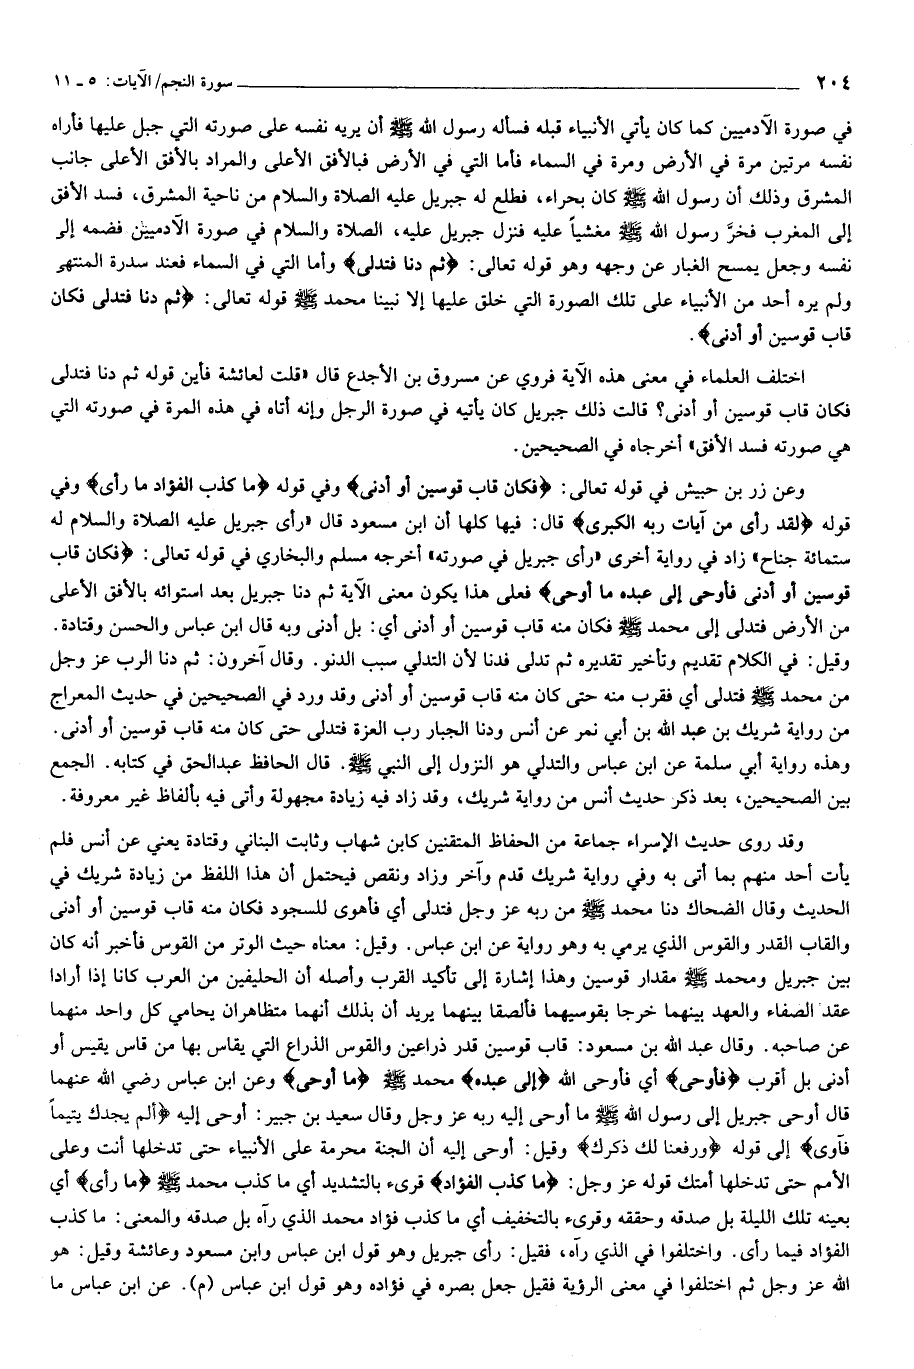 ٢٠٤ سورة النجم/ الآيات: ٥ ـ ١١
في صورة الآدميين كما كان يأتي الأنبياء قبله فسأله رسول الله ﷺ أن يريه نفسه على صورته التي جبل عليها فأراه
نفسه مرتين مرة في الأرض ومرة في السماء فأما التي في الأرض فبالأفق الأعلى والمراد بالأفق الأعلى جانب
المشرق وذلك أن رسول الله ﷺ كان بحراء، فطلع له جبريل عليه الصلاة والسلام من ناحية المشرق، فسد الأفق
إلى المغرب فخرَّ رسول الله ﷺ مغشياً عليه فنزل جبريل عليه، الصلاة والسلام في صورة الآدميين فضمه إلى
نفسه وجعل يمسح الغبار عن وجهه وهو قوله تعالى: ﴿ثم دنا فتدلى﴾ وأما التي في السماء فعند سدرة المنتهى
ولم يره أحد من الأنبياء على تلك الصورة التي خلق عليها إلا نبينا محمد ﷺ قوله تعالى: ﴿ثم دنا فتدلى فكان
قاب قوسين أو أدنى﴾.
اختلف العلماء في معنى هذه الآية فروي عن مسروق بن الأجدع قال «قلت لعائشة فأين قوله ثم دنا فتدلى
فكان قاب قوسين أو أدنى؟ قالت ذلك جبريل كان يأتيه في صورة الرجل وإنه أتاه في هذه المرة في صورته التي
هي صورته فسد الأفق» أخرجاه في الصحيحين.
وعن زر بن حبيش في قوله تعالى: ﴿فكان قاب قوسين أو أدنى﴾ وفي قوله ﴿ما كذب الفؤاد ما رأى﴾ وفي
قوله ﴿لقد رأى من آيات ربه الكبرى﴾ قال: فيها كلها أن ابن مسعود قال «رأى جبريل عليه الصلاة والسلام له
ستمائة جناح» زاد في رواية أخرى «رأى جبريل في صورته» أخرجه مسلم والبخاري في قوله تعالى: ﴿فكان قاب
قوسين أو أدنى فأوحى إلى عبده ما أوحى﴾ فعلى هذا يكون معنى الآية ثم دنا جبريل بعد استوائه بالأفق الأعلى
من الأرض فتدلى إلى محمد ﷺ فكان منه قاب قوسين أو أدنى أي: بل أدنى وبه قال ابن عباس والحسن وقتادة.
وقيل: في الكلام تقديم وتأخير تقديره ثم تدلى فدنا لأن التدلي سبب الدنو. وقال آخرون: ثم دنا الرب عز وجل
من محمد ﷺ فتدلى أي فقرب منه حتى كان منه قاب قوسين أو أدنى وقد ورد في الصحيحين في حديث المعراج
من رواية شريك بن عبد الله بن أبي نمر عن أنس ودنا الجبار رب العزة فتدلى حتى كان منه قاب قوسين أو أدنى.
وهذه رواية أبي سلمة عن ابن عباس والتدلي هو النزول إلى النبي ﷺ. قال الحافظ عبدالحق في كتابه. الجمع
بين الصحيحين، بعد ذكر حديث أنس من رواية شريك، وقد زاد فيه زيادة مجهولة وأتى فيه بألفاظ غير معروفة.
وقد روى حديث الإسراء جماعة من الحفاظ المتقنين كابن شهاب وثابت البناني وقتادة يعني عن أنس فلم
يأت أحد منهم بما أتى به وفي رواية شريك قدم وآخر وزاد ونقص فيحتمل أن هذا اللفظ من زيادة شريك في
الحديث وقال الضحاك دنا محمد ﷺ من ربه عز وجل فتدلى أي فأهوى للسجود فكان منه قاب قوسين أو أدنى
والقاب القدر والقوس الذي يرمي به وهو رواية عن ابن عباس. وقيل: معناه حيث الوتر من القوس فأخبر أنه كان
بين جبريل ومحمد ﷺ مقدار قوسين وهذا إشارة إلى تأكيد القرب وأصله أن الحليفين من العرب كانا إذا أرادا
عقد الصفاء والعهد بينهما خرجا بقوسيهما فألصقا بينهما يريد أن بذلك أنهما متظاهران يحامي كل واحد منهما
عن صاحبه. وقال عبد الله بن مسعود: قاب قوسين قدر ذراعين والقوس الذراع التي يقاس بها من قاس يقيس أو
أدنى بل أقرب ﴿فأوحى﴾ أي فأوحى الله ﴿إلى عبده﴾ محمد ﷺ ﴿ما أوحى﴾ وعن ابن عباس رضي الله عنهما
قال أوحى جبريل إلى رسول الله ﷺ ما أوحى إليه ربه عز وجل وقال سعيد بن جبير: أوحى إليه ﴿ألم يجدك يتيماً
فآوى﴾ إلى قوله ﴿ورفعنا لك ذكرك﴾ وقيل: أوحى إليه أن الجنة محرمة على الأنبياء حتى تدخلها أنت وعلى
الأمم حتى تدخلها أمتك قوله عز وجل: ﴿ما كذب الفؤاد﴾ قرىء بالتشديد أي ما كذب محمد ﷺ ﴿ما رأى﴾ أي
بعينه تلك الليلة بل صدقه وحققه وقرىء بالتخفيف أي ما كذب فؤاد محمد الذي رآه بل صدقه والمعنى: ما كذب
الفؤاد فيما رأى. واختلفوا في الذي رآه، فقيل: رأى جبريل وهو قول ابن عباس وابن مسعود وعائشة وقيل: هو
الله عز وجل ثم اختلفوا في معنى الرؤية فقيل جعل بصره في فؤاده وهو قول ابن عباس (م). عن ابن عباس ما